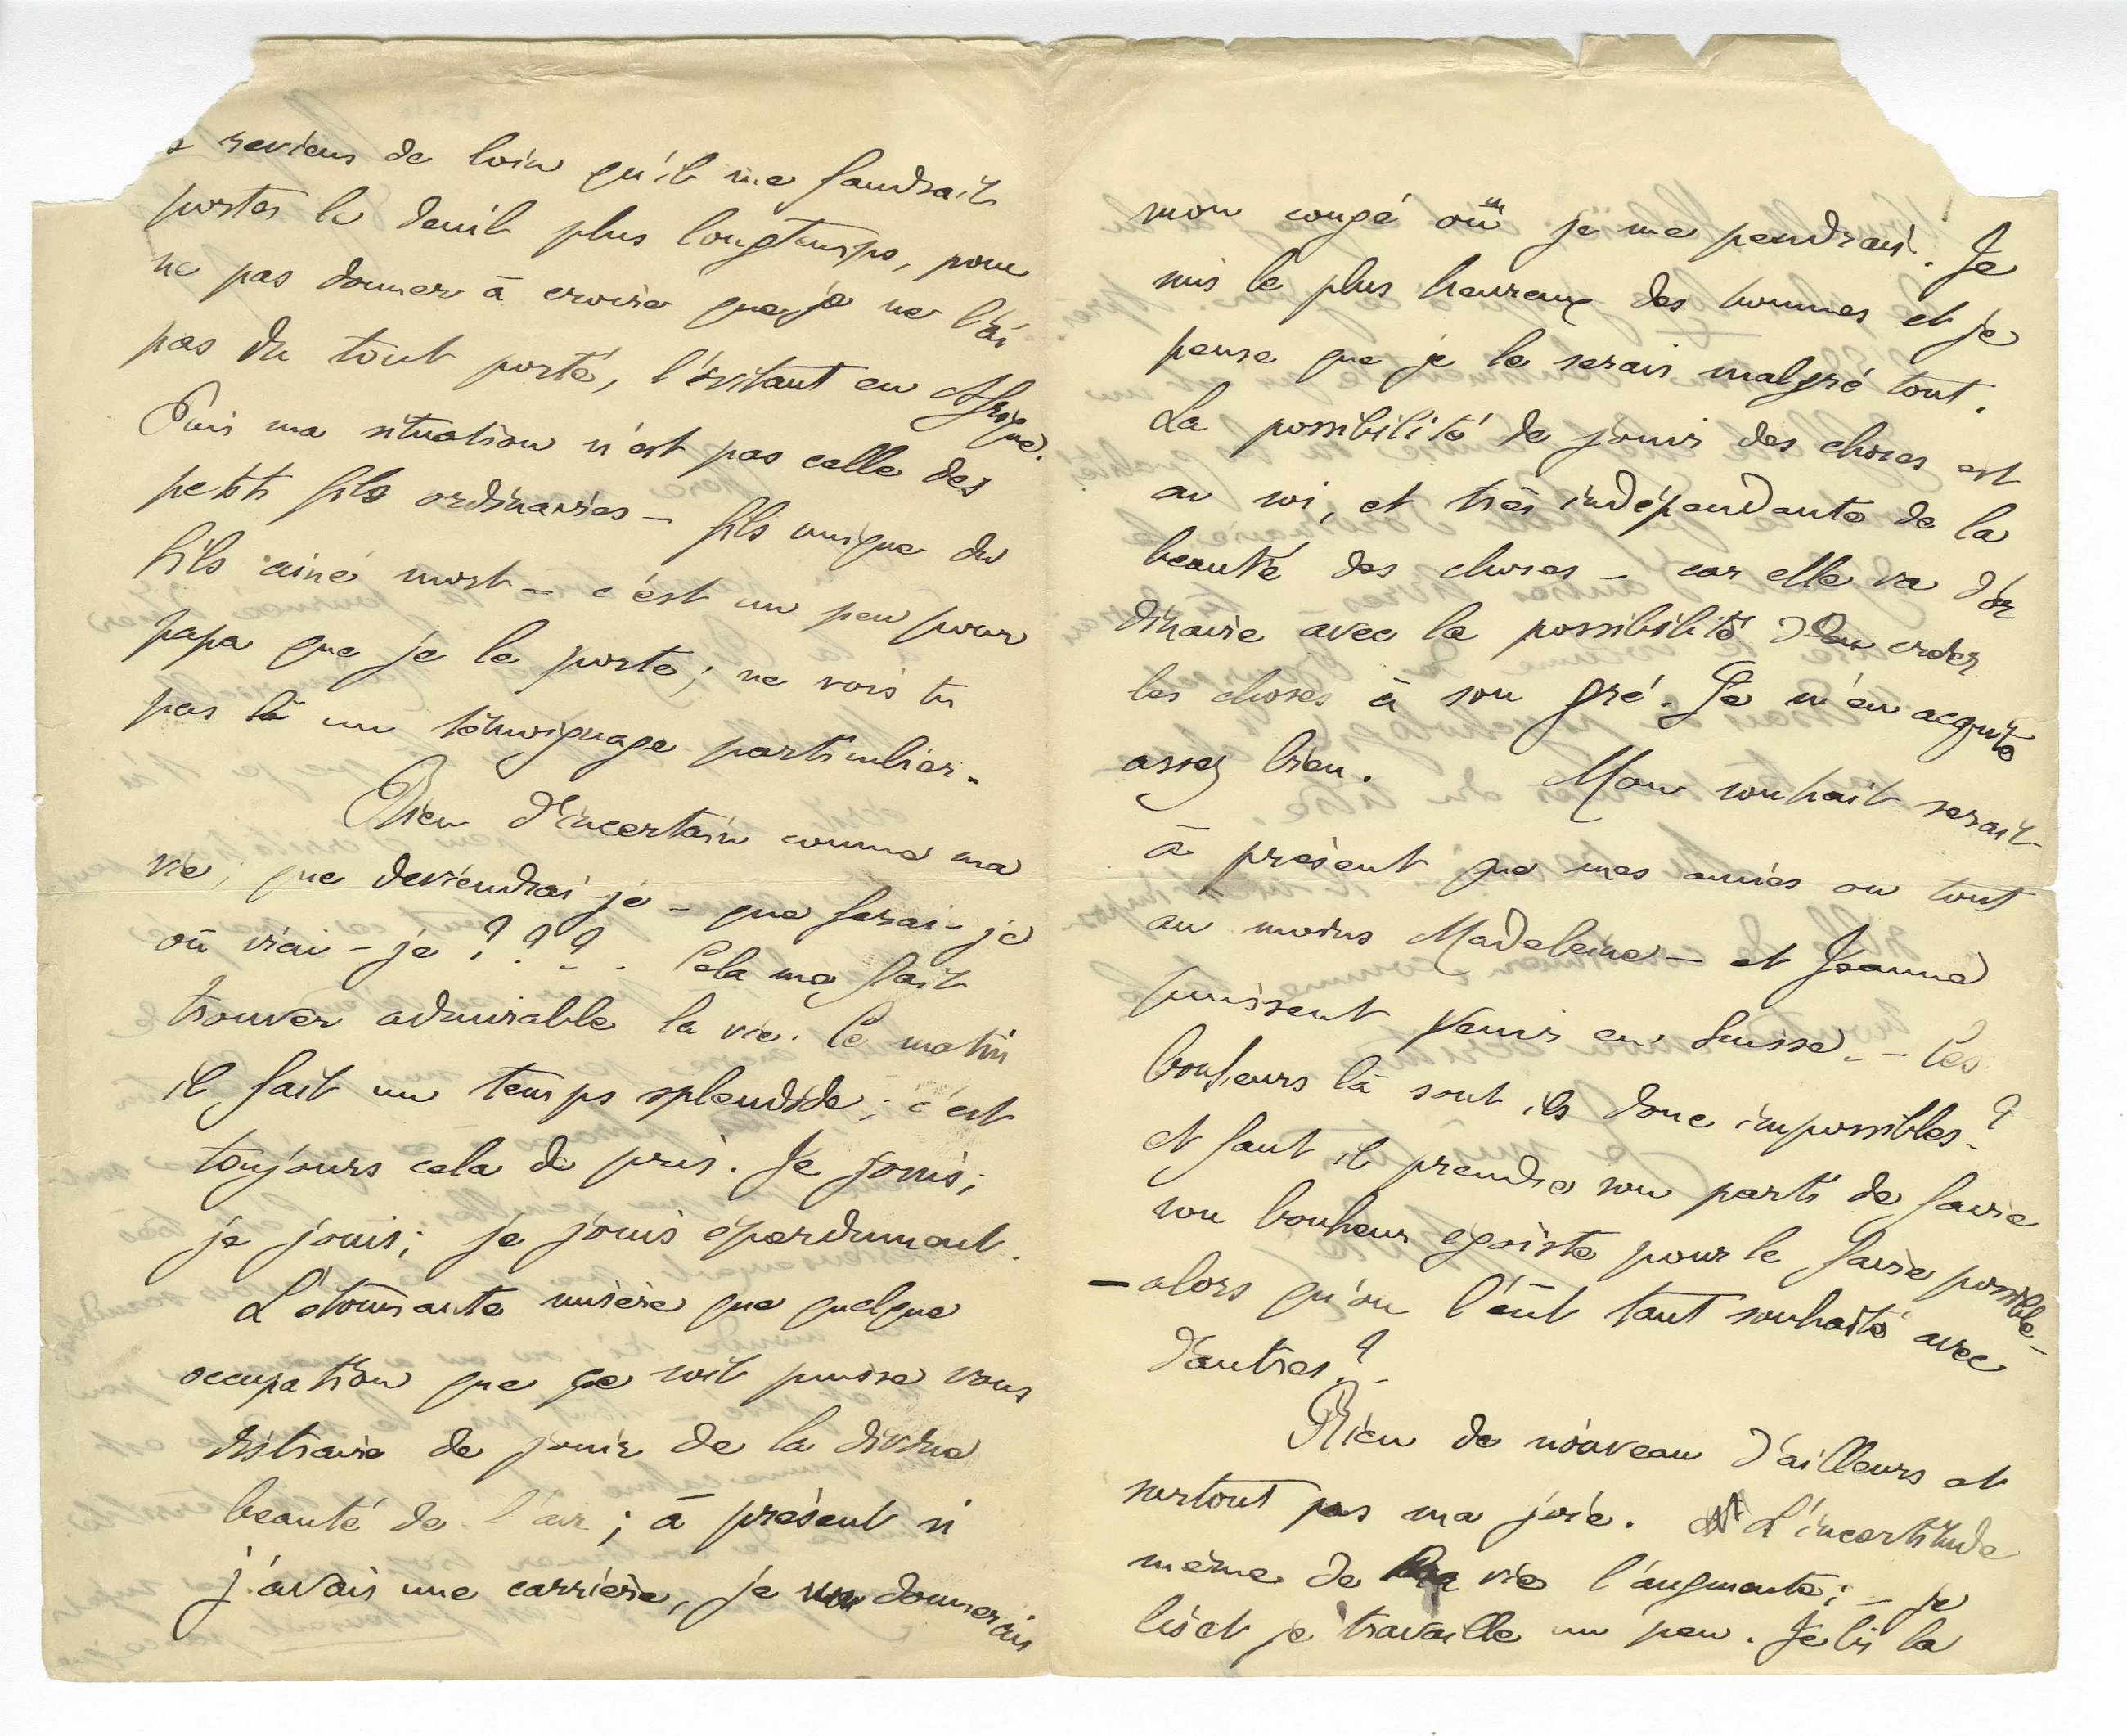 reviens de loin qu'il me faudrait
porter le deuil plus longtemps, pour
ne pas donner à croire que je ne l'ai
pas du tout porté, l'évitant en Afrique.
Puis ma situation n'est pas celle des
petits fils ordinaires – fils unique du
fils ainé mort – c'est un peu pour
papa que je le porte ; ne vois tu
pas là un témoignage particulier.
Rien d'incertain comme ma
vie ; que deviendrai je – que ferai-je
où irai-je ? ? ? . Cela me fait
trouver admirable la vie. Ce matin
il fait un temps splendide ; c'est
toujours cela de pris. Je jouis ;
je jouis ; je jouis éperdument.
L'étonnante misère que quelque
occupation que ce soit puisse vous
distraire de jouir de la divine
beauté de l'air ; à présent si
j'avais une carrière, je donnerais
mon congé ou je me pendrais. Je
suis le plus heureux des hommes et je
pense que je le serais malgré tout.
La possibilité de jouir des choses est
en soi, et très indépendante de la
beauté des choses – car elle va d'or
dinaire avec la possibilité de créer
les choses à son gré. Je m'en acquitte
assez bien. Mon souhait serait
à présent que mes amies ou tout
au moins Madeleine – et Jeanne
puissent venir en Suisse. – Ces
bonheurs là sont ils donc impossibles ?
et faut il prendre son parti de faire
son bonheur égoïste pour le faire possible –
– alors qu'on l'eût tant souhaité avec
d'autres ?
Rien de nouveau d'ailleurs et
surtout pas ma joie. L'incertitude
même de ma vie l'augmente ; – je
lis et je travaille un peu. Je lis la